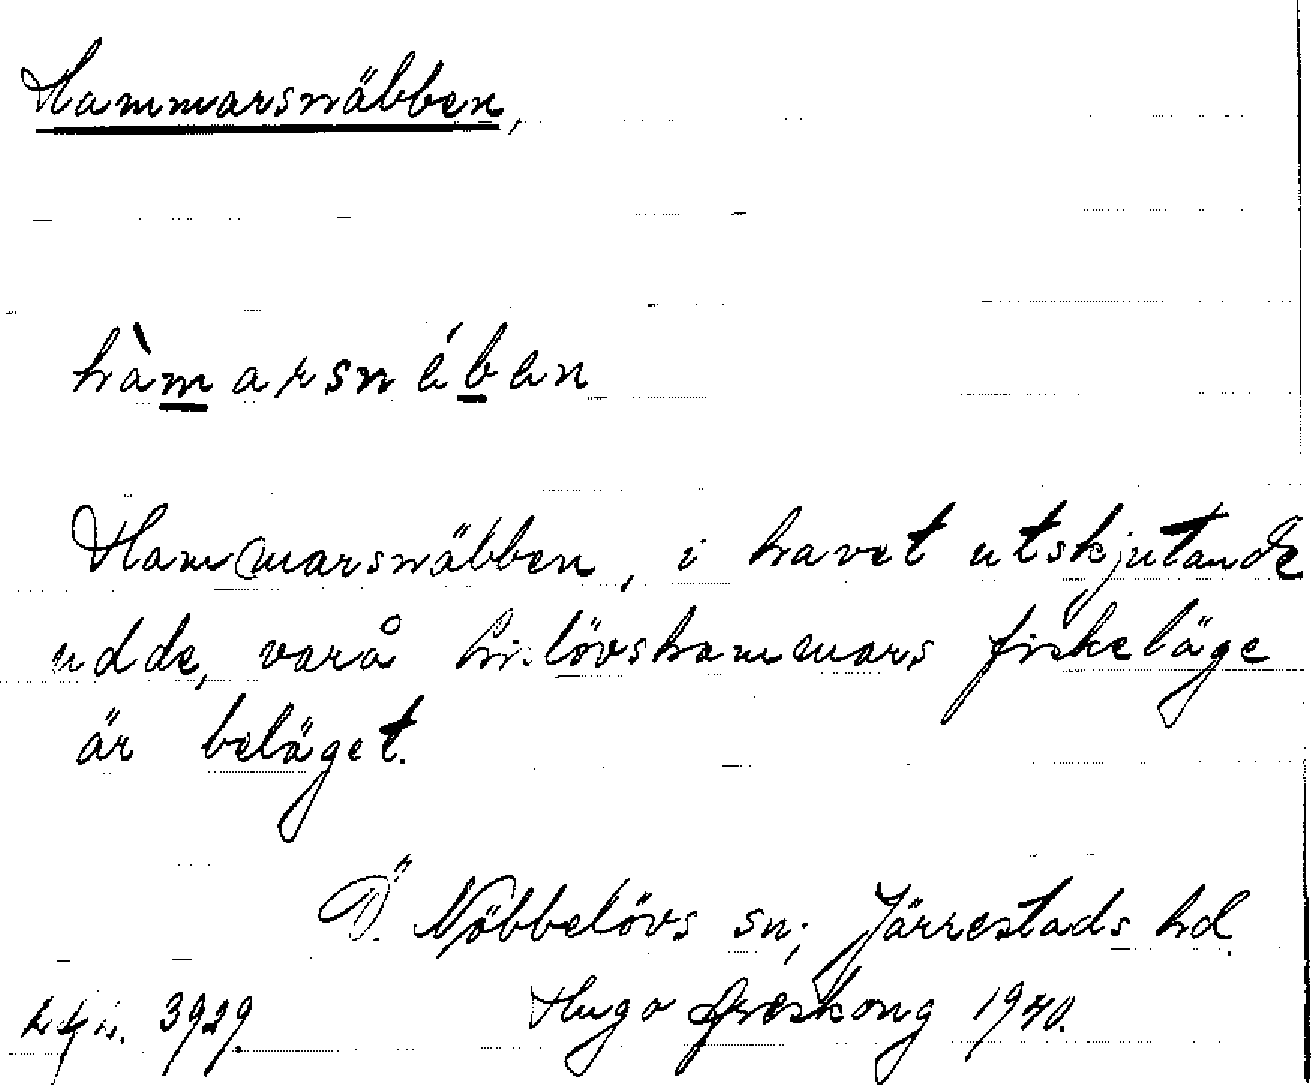 Hammarsnäbben,
hàmarsnében
Hammarsnäbben, i havet utskjutande
udde, varå Örlövshammars fiskeläge
är beläget.
Ö. Nöbbelövs sn; Järrestads hd.
3929. Hugo Areskoug 1940.